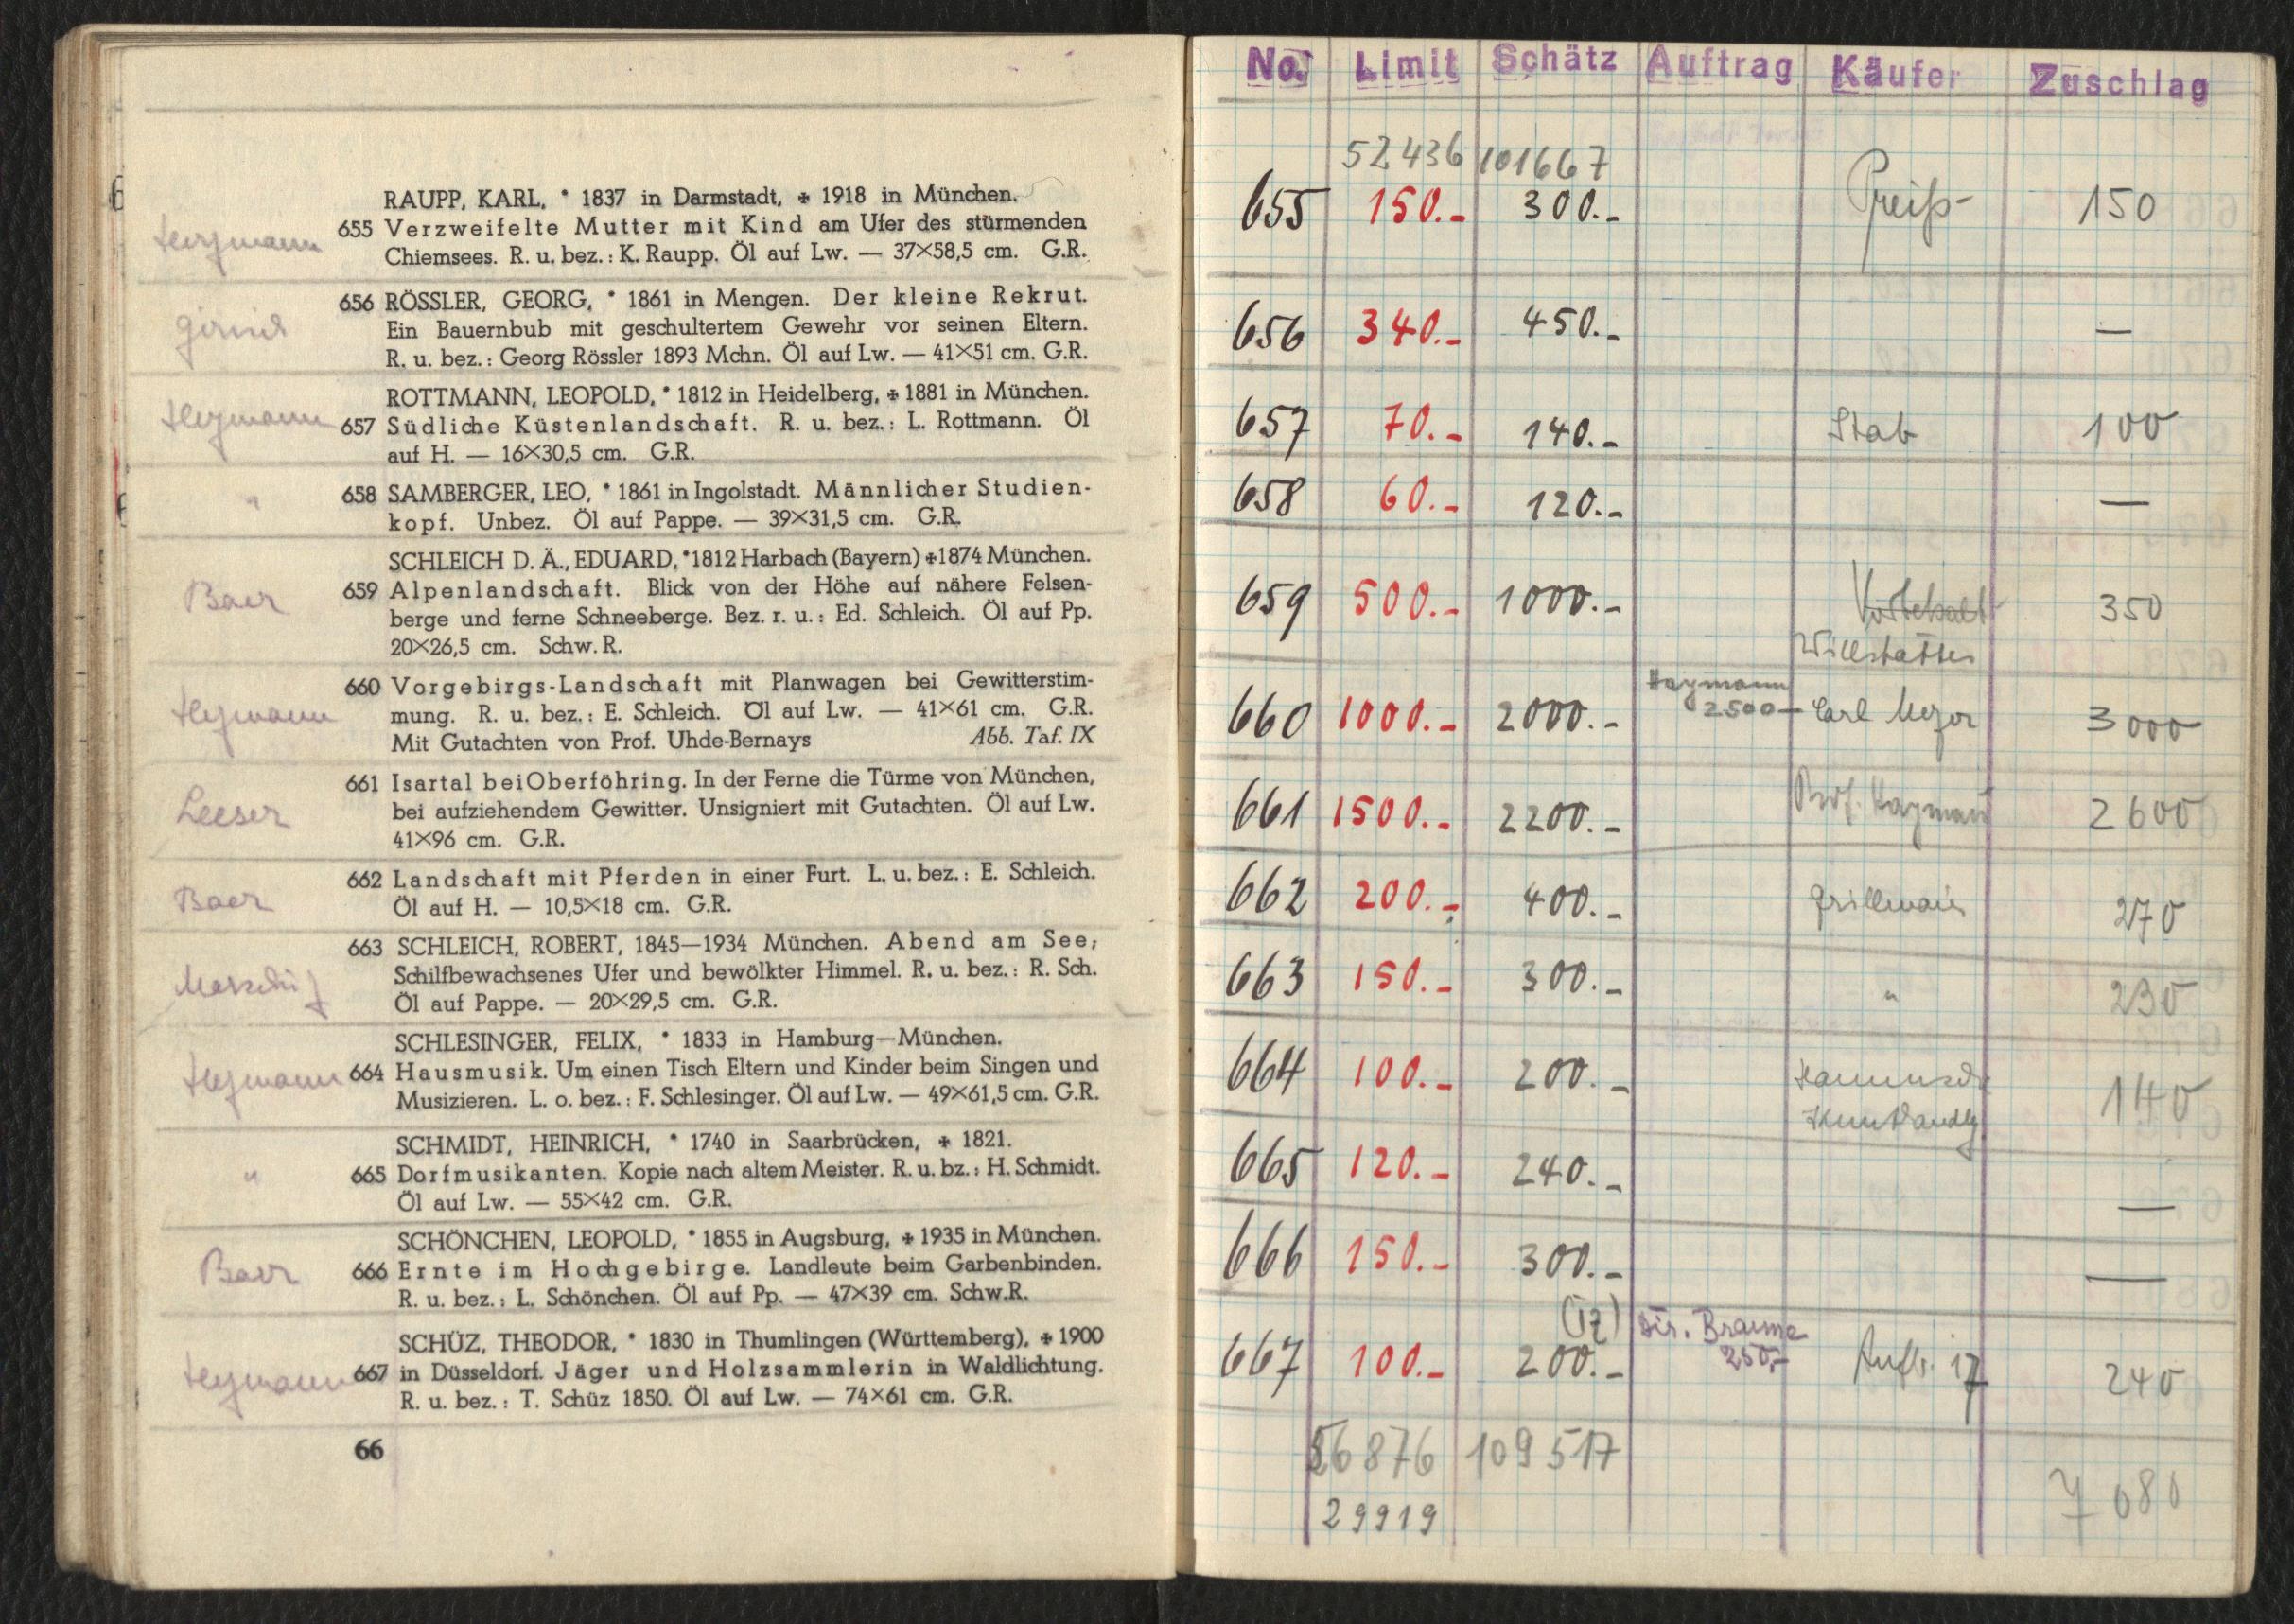 RAUPP, KARL, * 1837 in Darmstadt, ✠ 1918 in München.
Heymann 655 Verzweifelte Mutter mit Kind am Ufer des stürmenden
Chiemsees. R. u. bez.: K. Raupp. Öl auf Lw. — 37×58,5 cm. G.R.
656 RÖSSLER, GEORG, * 1861 in Mengen. Der kleine Rekrut.
Ein Bauernbub mit geschultertem Gewehr vor seinen Eltern.
R. u. bez.: Georg Rössler 1893 Mchn. Öl auf Lw. — 41×51 cm. G.R.
ROTTMANN, LEOPOLD, * 1812 in Heidelberg, ✠ 1881 in München.
Heymann 657 Südliche Küstenlandschaft. R. u. bez.: L. Rottmann. Öl
auf H. — 16×30,5 cm. G.R.
" 658 SAMBERGER, LEO, * 1861 in Ingolstadt. Männlicher Studien-
kopf. Unbez. Öl auf Pappe. — 39×31,5 cm. G.R.
SCHLEICH D. Ä., EDUARD, * 1812 Harbach (Bayern) ✠ 1874 München.
Baer 659 Alpenlandschaft. Blick von der Höhe auf nähere Felsen-
berge und ferne Schneeberge. Bez. r. u.: Ed. Schleich. Öl auf Pp.
20×26,5 cm. Schw. R.
660 Vorgebirgs-Landschaft mit Planwagen bei Gewitterstim-
Heymann mung. R. u. bez.: E. Schleich. Öl auf Lw. — 41×61 cm. G.R.
Mit Gutachten von Prof. Uhde-Bernays Abb. Taf. IX
661 Isartal bei Oberföhring. In der Ferne die Türme von München,
Leeser bei aufziehendem Gewitter. Unsigniert mit Gutachten. Öl auf Lw.
41×96 cm. G.R.
662 Landschaft mit Pferden in einer Furt. L. u. bez.: E. Schleich.
Baer Öl auf H. — 10,5×18 cm. G.R.
663 SCHLEICH, ROBERT, 1845—1934 München. Abend am See;
Schilfbewachsenes Ufer und bewölkter Himmel. R. u. bez.: R. Sch.
Öl auf Pappe. — 20×29,5 cm. G.R.
SCHLESINGER, FELIX, * 1833 in Hamburg—München.
Heymann 664 Hausmusik. Um einen Tisch Eltern und Kinder beim Singen und
Musizieren. L. o. bez.: F. Schlesinger. Öl auf Lw. — 49×61,5 cm. G.R.
SCHMIDT, HEINRICH, * 1740 in Saarbrücken, ✠ 1821.
" 665 Dorfmusikanten. Kopie nach altem Meister. R. u. bz.: H. Schmidt.
Öl auf Lw. — 55×42 cm. G.R.
SCHÖNCHEN, LEOPOLD, * 1855 in Augsburg, ✠ 1935 in München.
Baer 666 Ernte im Hochgebirge. Landleute beim Garbenbinden.
R. u. bez.: L. Schönchen. Öl auf Pp. — 47×39 cm. Schw.R.
SCHÜZ, THEODOR, * 1830 in Thumlingen (Württemberg), ✠ 1900
Heymann 667 in Düsseldorf. Jäger und Holzsammlerin in Waldlichtung.
R. u. bez.: T. Schüz 1850. Öl auf Lw. — 74×61 cm. G.R.
66
No. Limit Schätz Auftrag Käufer Zuschlag
52436 101667
655 150.- 300.- Preiß 150
656 340.- 450.- —
657 70.- 140.- Stab 100
658 60.- 120.- —
659 500.- 1000.- 350
Willstätter
Haymann
660 1000.- 2000.- 2500 Carl Meyer 3000
661 1500.- 2200.- Prof. Haymann 2600
662 200.- 400.- Grillmaier 270
663 150.- 300.- " 230
664 100.- 200.- 140
Kunsthandlg
665 120.- 240.- —
666 150.- 300.- —
(17) Dir. Braune
667 100.- 200.- 250.- Auftr. 17 240
56876 109517
29919 7080